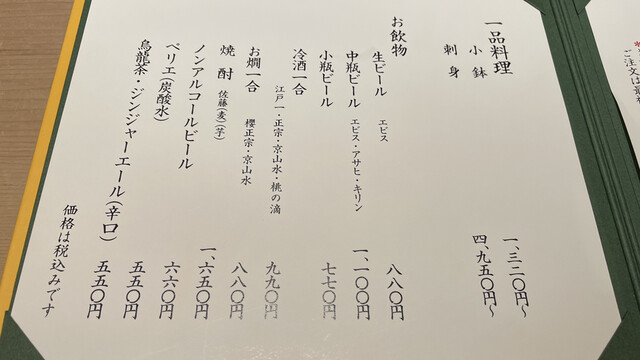 一品料理
小鉢 一、三二〇円～
刺身 四、九五〇円～
お飲物
生ビール エビス 八八〇円
中瓶ビール エビス・アサヒ・キリン 一、一〇〇円
小瓶ビール 七七〇円
冷酒一合 江戸一・正宗・京山水・桃の滴 九九〇円
お燗一合 櫻正宗・京山水 八八〇円
焼酎 佐藤(麦)(芋) 一、六五〇円
ノンアルコールビール 六六〇円
ペリエ(炭酸水) 五五〇円
烏龍茶・ジンジャーエール(辛口) 五五〇円
価格は税込みです
ご注文は最